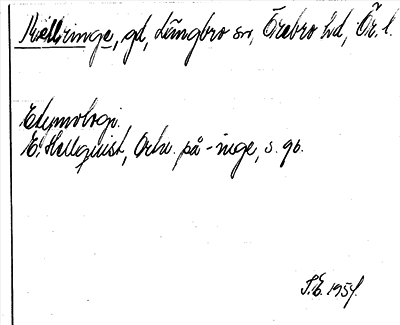 Kvällringe, gd, Längbro sn, Örebro hd, Ör. l.
Etymologi.
E. Hellquist, Ortn. på -inge, s. 90.
S.E. 1954.